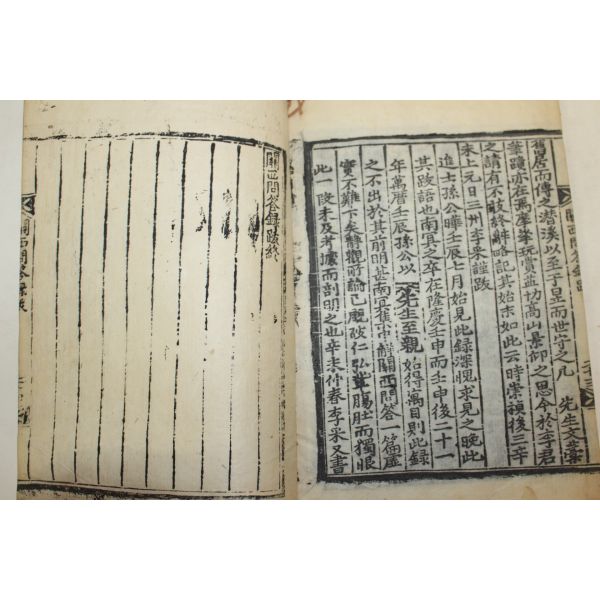 舊居而傳之潛溪以至于昱而世守之凡　先生文藁
筆蹟亦在焉座肇玩賞益切高山景仰之思今於李君
之請有不敢終辭略記其始末如此云時崇禎後三辛
未上元日三州李采謹跋
進士孫公曄壬辰七月始見此錄深愧求見之晚此
其跋語也南冥之卒在隆慶壬申而壬申後二十一
年萬曆壬辰孫公以　先生至親始得寓目則此錄
之不出於其前明甚南冥集中解關西問答一篇虛
實不難下矣靜觀所論已覷破仁弘輩膓肚而獨眼
此一段未及考據而剖明之也辛未仲春李采又書
關西問答錄跋終
關西問答錄跋
關西問答錄跋